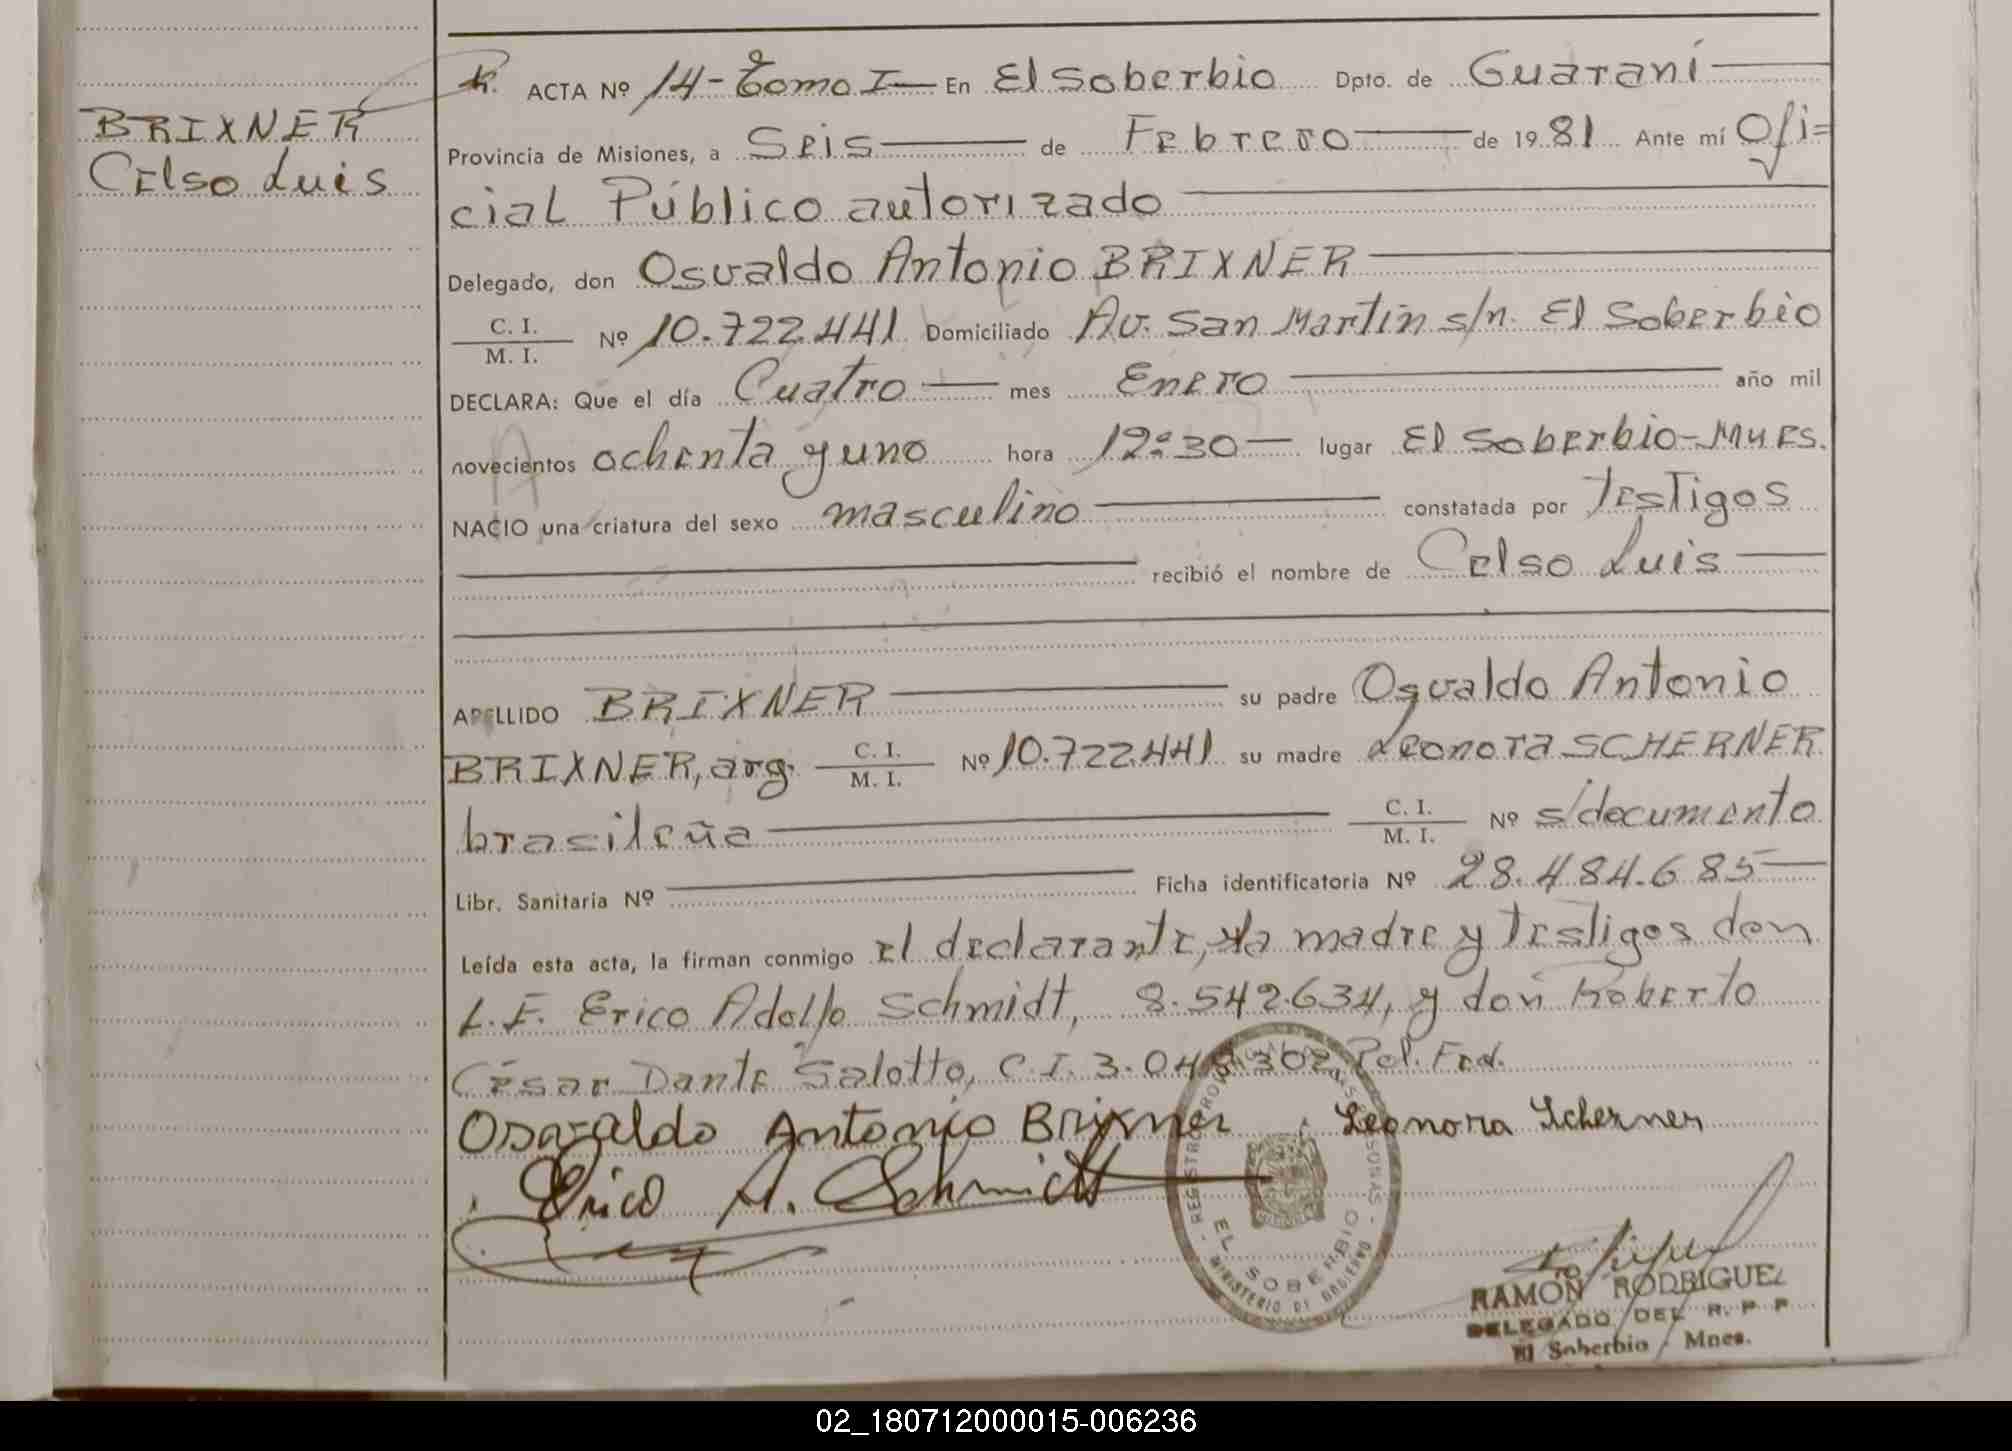 BRIXNER
Celso Luis
R. ACTA Nº 14- Tomo I En El Soberbio Dpto. de Guaraní
Provincia de Misiones, a Seis de Febrero de 1981 Ante mí Ofi=
cial Público autorizado
Delegado, don Osvaldo Antonio BRIXNER
C. I. / M. I. Nº 10.722.441 Domiciliado Av. San Martín s/n. El Soberbio
DECLARA: Que el día Cuatro mes Enero año mil
novecientos ochenta y uno hora 12:30 lugar El Soberbio-Mnes.
NACIO una criatura del sexo masculino constatada por testigos
recibió el nombre de Celso Luis
APELLIDO BRIXNER su padre Osvaldo Antonio
BRIXNER, arg. C. I. / M. I. Nº 10.722.441 su madre Leonora SCHERNER
brasileña C. I. / M. I. Nº s/documento
Libr. Sanitaria Nº Ficha identificatoria Nº 28.484.685
Leída esta acta, la firman conmigo el declarante, la madre y testigos don
L.E. Erico Adolfo Schmidt, 8.542.634, y don Roberto
César Dante Salotto, C.I. 3.048.302 Pol. Fed.
Osvaldo Antonio Brixner Leonora Scherner
Erico A. Schmidt
EL SOBERBIO
MINISTERIO DE GOBIERNO
RAMON RODRIGUEZ
DELEGADO DEL R. P. P.
El Soberbio / Mnes.
02_180712000015-006236